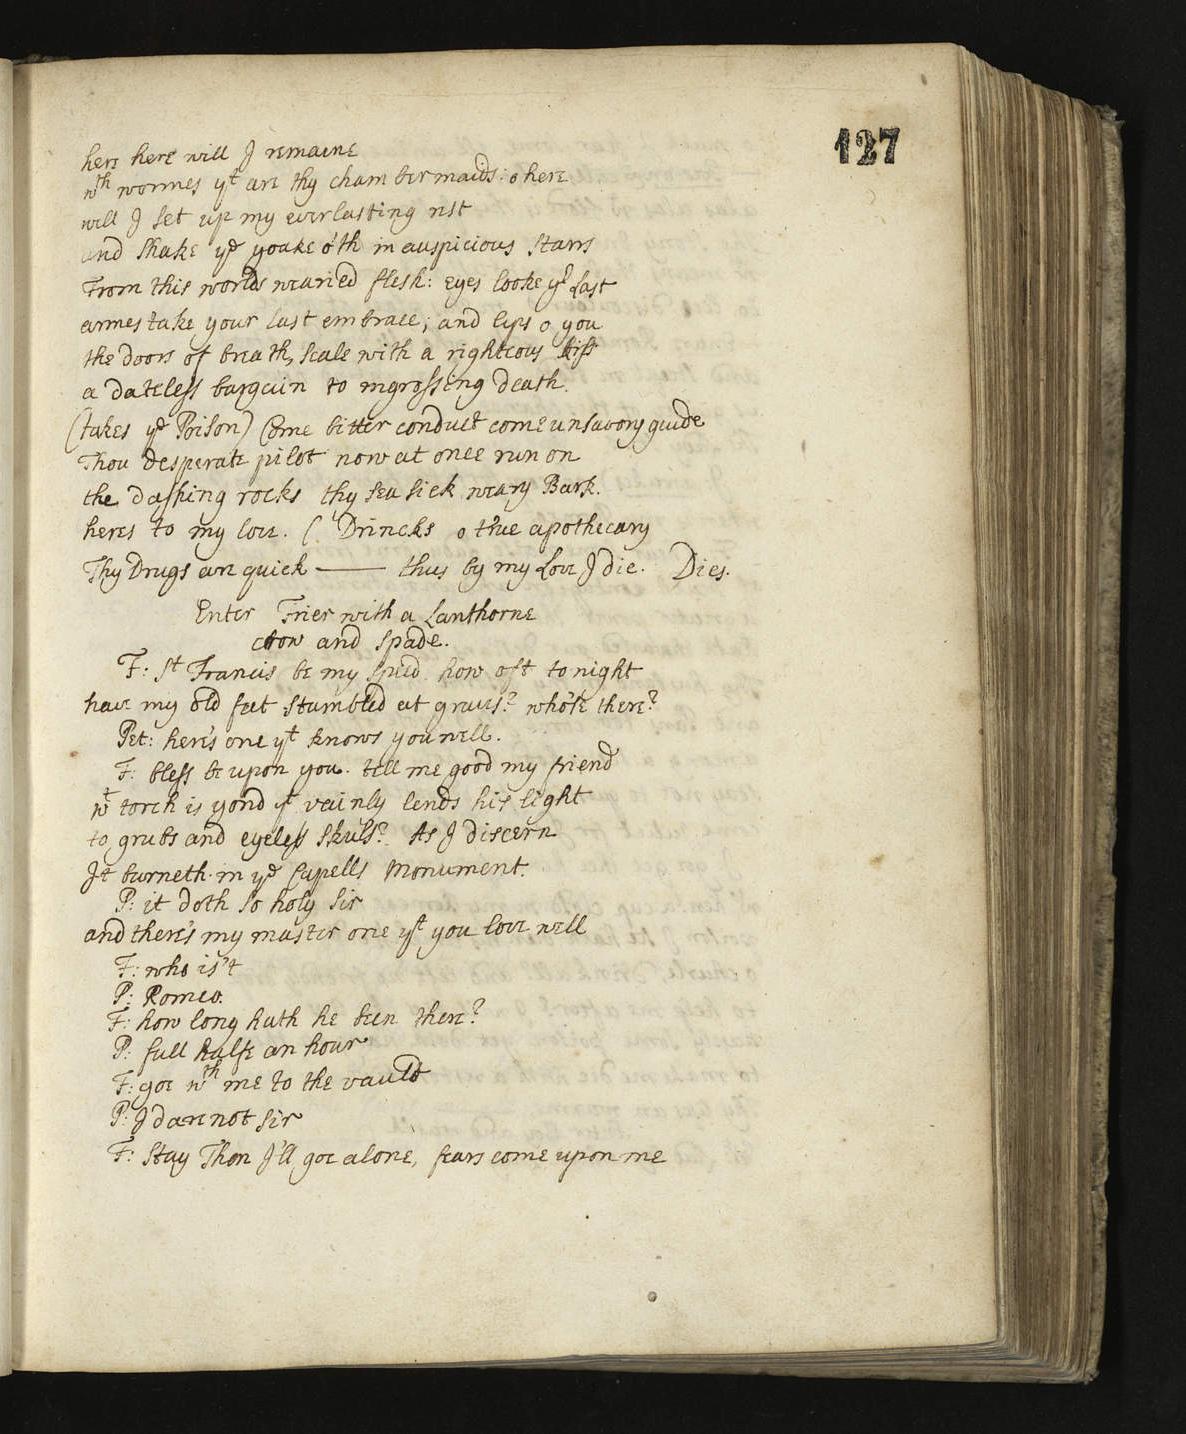 127
here here will I remaine
wth wormes yt are thy chambermaids: o here
will I set up my everlasting rest
and shake ye yoake o'th inauspicious starrs
From this worlds wearied flesh: eyes looke yr last
armes take your last embrace; and lips o you
the doors of breath, seale with a righteous kiss
a dateless bargain to ingrossing death.
(takes ye Poison) Come bitter conduct come unsavory guide
Thou desperate pilot now at once run on
the dashing rocks thy sea sick weary Bark.
heres to my love. (Drincks o true apothecary
Thy Drugs are quick —— thus by my Love I die. Dies.
Enter Frier with a Lanthorne
crow and spade.
F: St Francis be my speed how oft to night
have my old feet stumbled at graves? whose there?
Pet: here's one yt knows you well.
F: bless be upon you. tell me good my friend
wt torch is yond yt vainly lends his light
to grubs and eyeless skuls? As I discern
It burneth in ye Capells Monument.
P: it doth so holy sir
and there's my master one yt you love well
F: who is't
P: Romeo.
F: how long hath he been there?
P: full halfe an hour
F: goe wth me to the vauld
P: I dare not sir
F: stay Then I'll goe alone, fears come upon me